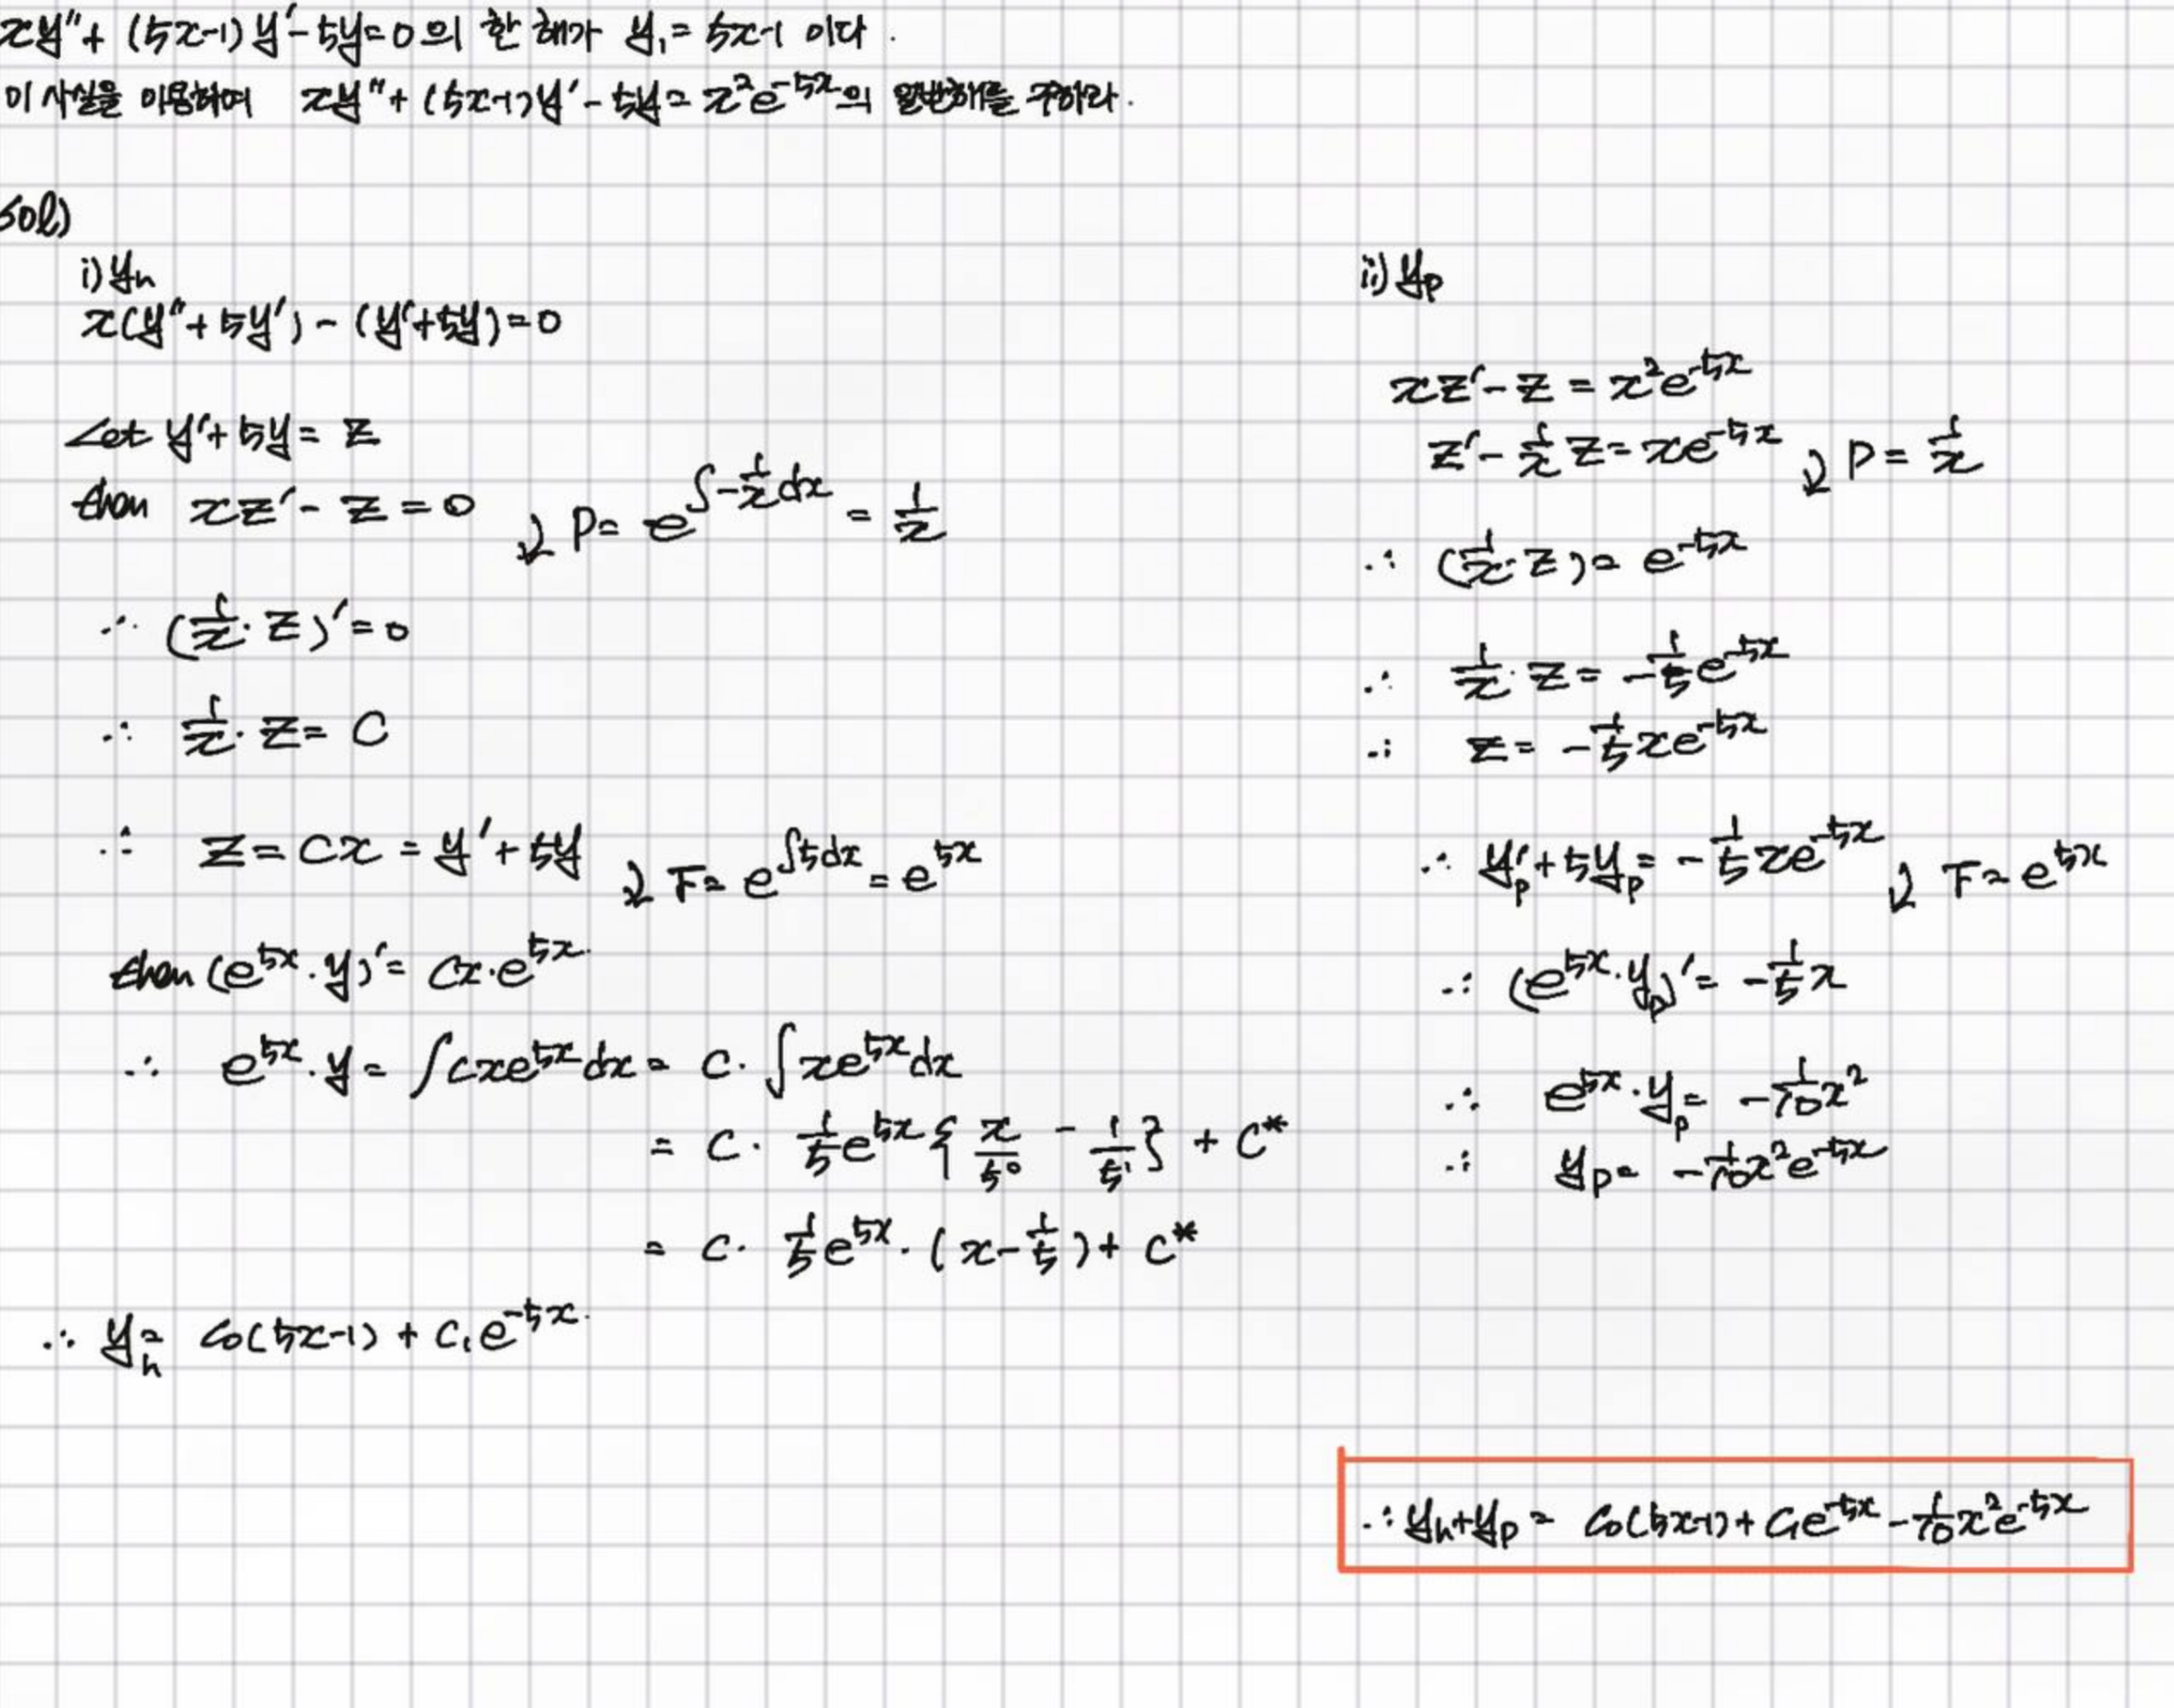 xy''+ (5x-1)y'-5y=0 의 한 해가 y₁= 5x-1 이다.
이 사실을 이용하여 xy''+(5x-1)y'-5y= x²e⁻⁵ˣ의 일반해를 구하라.
sol)
i) yₕ
x(y''+5y') - (y'+5y)=0
Let y'+5y= z
then xz'- z = 0 ⤵ P= e^{∫-1/x dx} = 1/x
∴ (1/x · z)'=0
∴ 1/x · z= C
∴ z= Cx = y'+5y ⤵ F= e^{∫5dx} = e^{5x}
then (e^{5x}·y)'= Cx·e^{5x}
∴ e^{5x}·y= ∫cxe^{5x}dx= C·∫xe^{5x}dx
= C· 1/5 e^{5x}{x/5⁰ - 1/5¹} + C*
= C· 1/5 e^{5x}·(x-1/5)+ C*
∴ yₕ= C₀(5x-1) + C₁e^{-5x}
ii) yₚ
xz'- z = x²e^{-5x}
z'- 1/x z= xe^{-5x} ⤵ P= 1/x
∴ (1/x · z)= e^{-5x}
∴ 1/x · z= -1/5 e^{-5x}
∴ z= -1/5 xe^{-5x}
∴ yₚ'+5yₚ= -1/5 xe^{-5x} ⤵ F= e^{5x}
∴ (e^{5x}·yₚ)'= -1/5 x
∴ e^{5x}·yₚ= -1/10 x²
∴ yₚ= -1/10 x²e^{-5x}
∴ yₕ+yₚ= C₀(5x-1)+C₁e^{-5x}-1/10 x²e^{-5x}